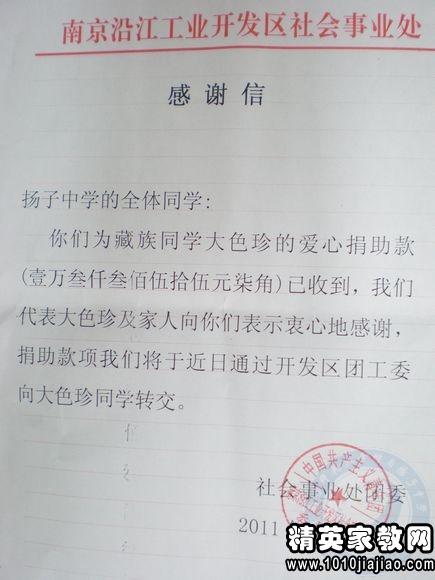 南京沿江工业开发区社会事业处
感谢信
扬子中学的全体同学:
你们为藏族同学大色珍的爱心捐助款
(壹万叁仟叁佰伍拾伍元柒角)已收到，我们
代表大色珍及家人向你们表示衷心地感谢，
捐助款项我们将于近日通过开发区团工委
向大色珍同学转交。
中国共产主义青年团
社会事业处团委
2011
精英家教网
www.1010jiajiao.com